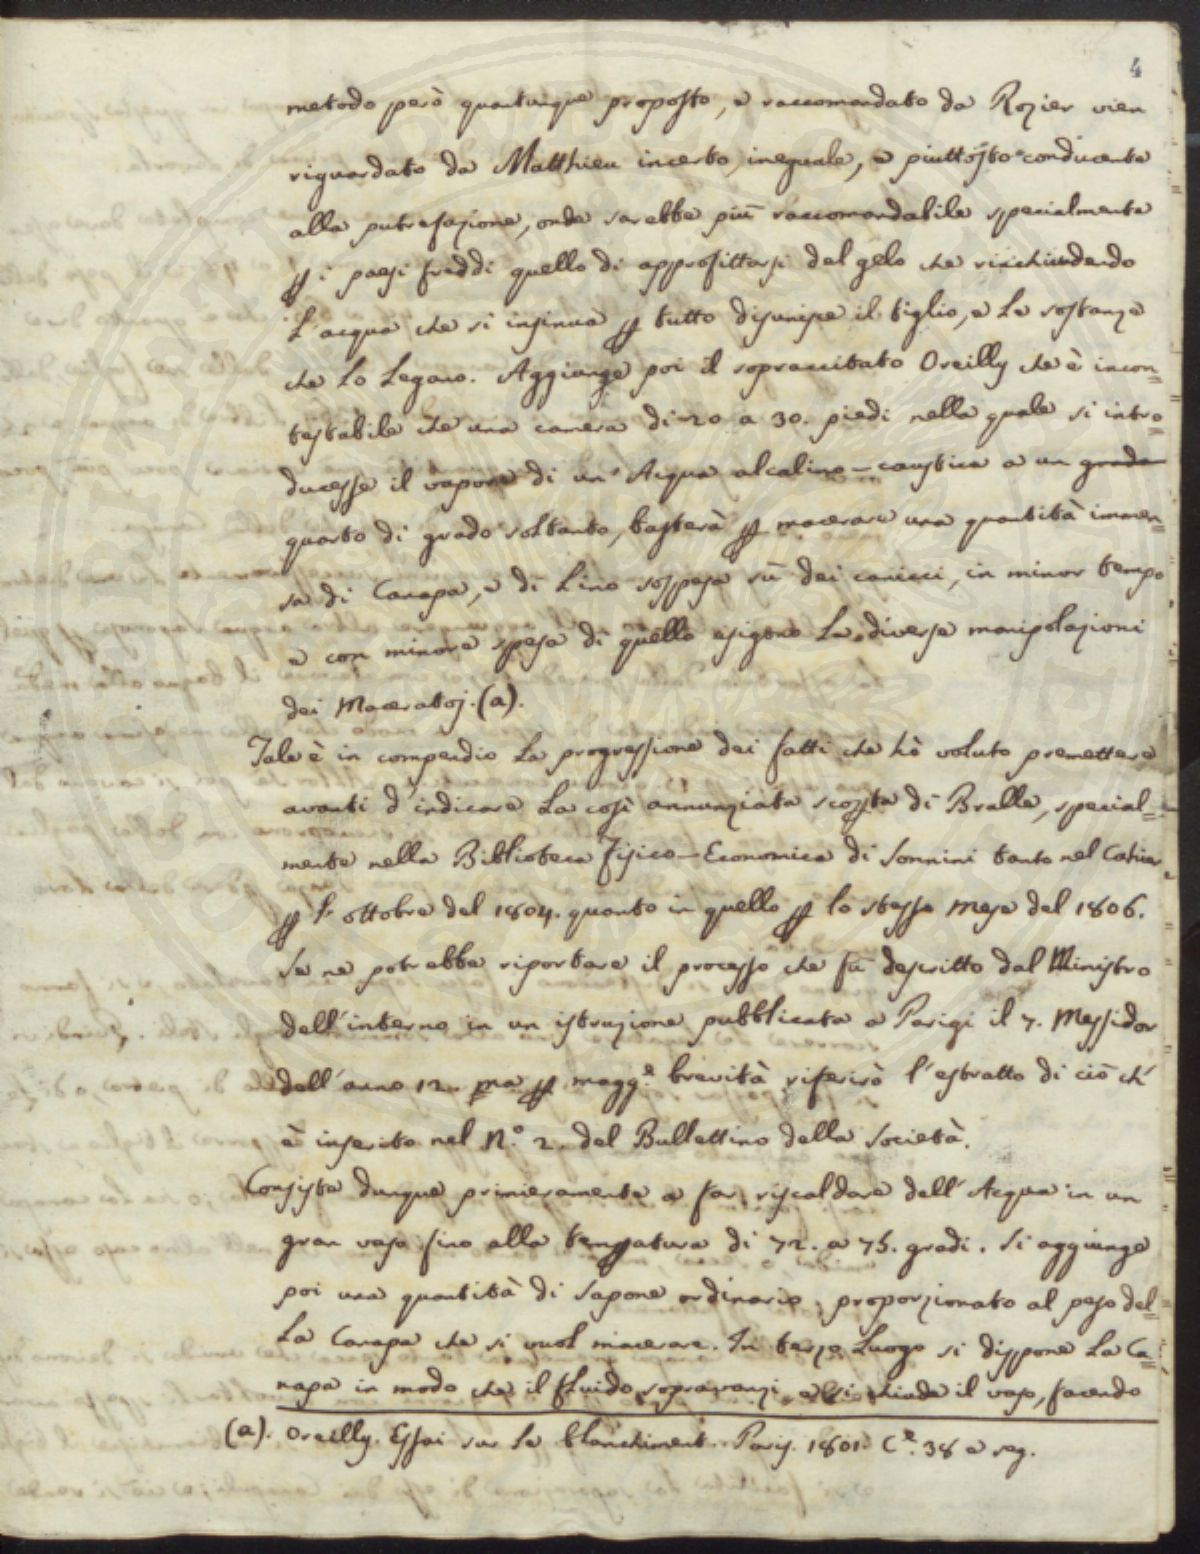 4
metodo però quantunque proposto, e raccomandato da Rozier vien
riguardato da Matthieu incerto, ineguale, e piuttosto conducente
alla putrefazione, onde sarebbe più raccomandabile specialmente
p i paesi freddi quello di approfittarsi del gelo che rinchiudendo
l'acqua che si insinua p tutto disunisce il tiglio, e le sostanze
che lo legano. Aggiunge poi il sopraccitato Oreilly che è incon=
testabile che una camera di 20 a 30. piedi nella quale si intro=
ducesse il vapore di un' Acqua alcalino-caustica a un grado
quarto di grado soltanto, basterà p macerare una quantità immen=
sa di Canapa, e di Lino sospesa sù dei canicci, in minor tempo
e con minore spesa di quello esigono le diverse manipolazioni
dei Maceratoj. (a).
Tale è in compendio la progressione dei fatti che hò voluto premettere
avanti d'indicare la così annunziata scopta di Bralle, special=
mente nella Biblioteca Fisico-Economica di Sonnini tanto nel Cahier
p l' ottobre del 1804. quanto in quello p lo stesso mese del 1806.
Se ne potrebbe riportare il processo che fù descritto dal Ministro
dell'interno in un istruzione pubblicata a Parigi il 7. Messidor
dell'anno 12. ma p magg.e brevità riferirò l'estratto di ciò ch'
è inserito nel N.o 2. del Bullettino della Società.
Consiste dunque primieramente a far riscaldare dell'Acqua in un
gran vaso fino alla tempatura di 72. a 75. gradi. Si aggiunge
poi una quantità di Sapone ordinario proporzionato al peso del=
la Canapa che si vuol macerare. In terzo Luogo si dispone la Ca=
napa in modo che il fluido sopravanzi, e si chiude il vaso, facendo
(a). Oreilly. Essai sur le blanchiment. Paris. 1801. C.e 38 e seg.